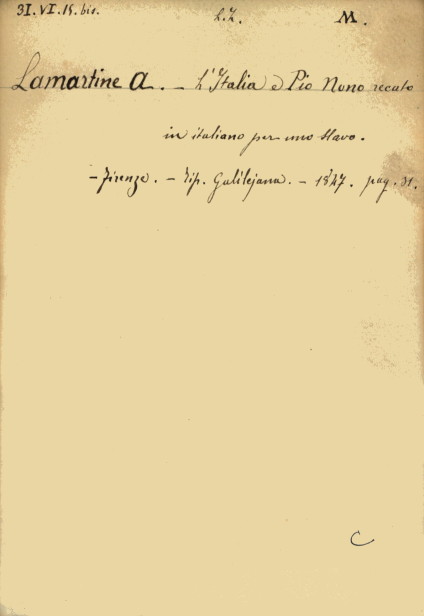 31.VI.15.bis. M.
Lamartine A. - L'Italia e Pio Nono recato
in italiano per uno slavo.
- Firenze. - Tip. Galilejana. - 1847. pag. 31.
C